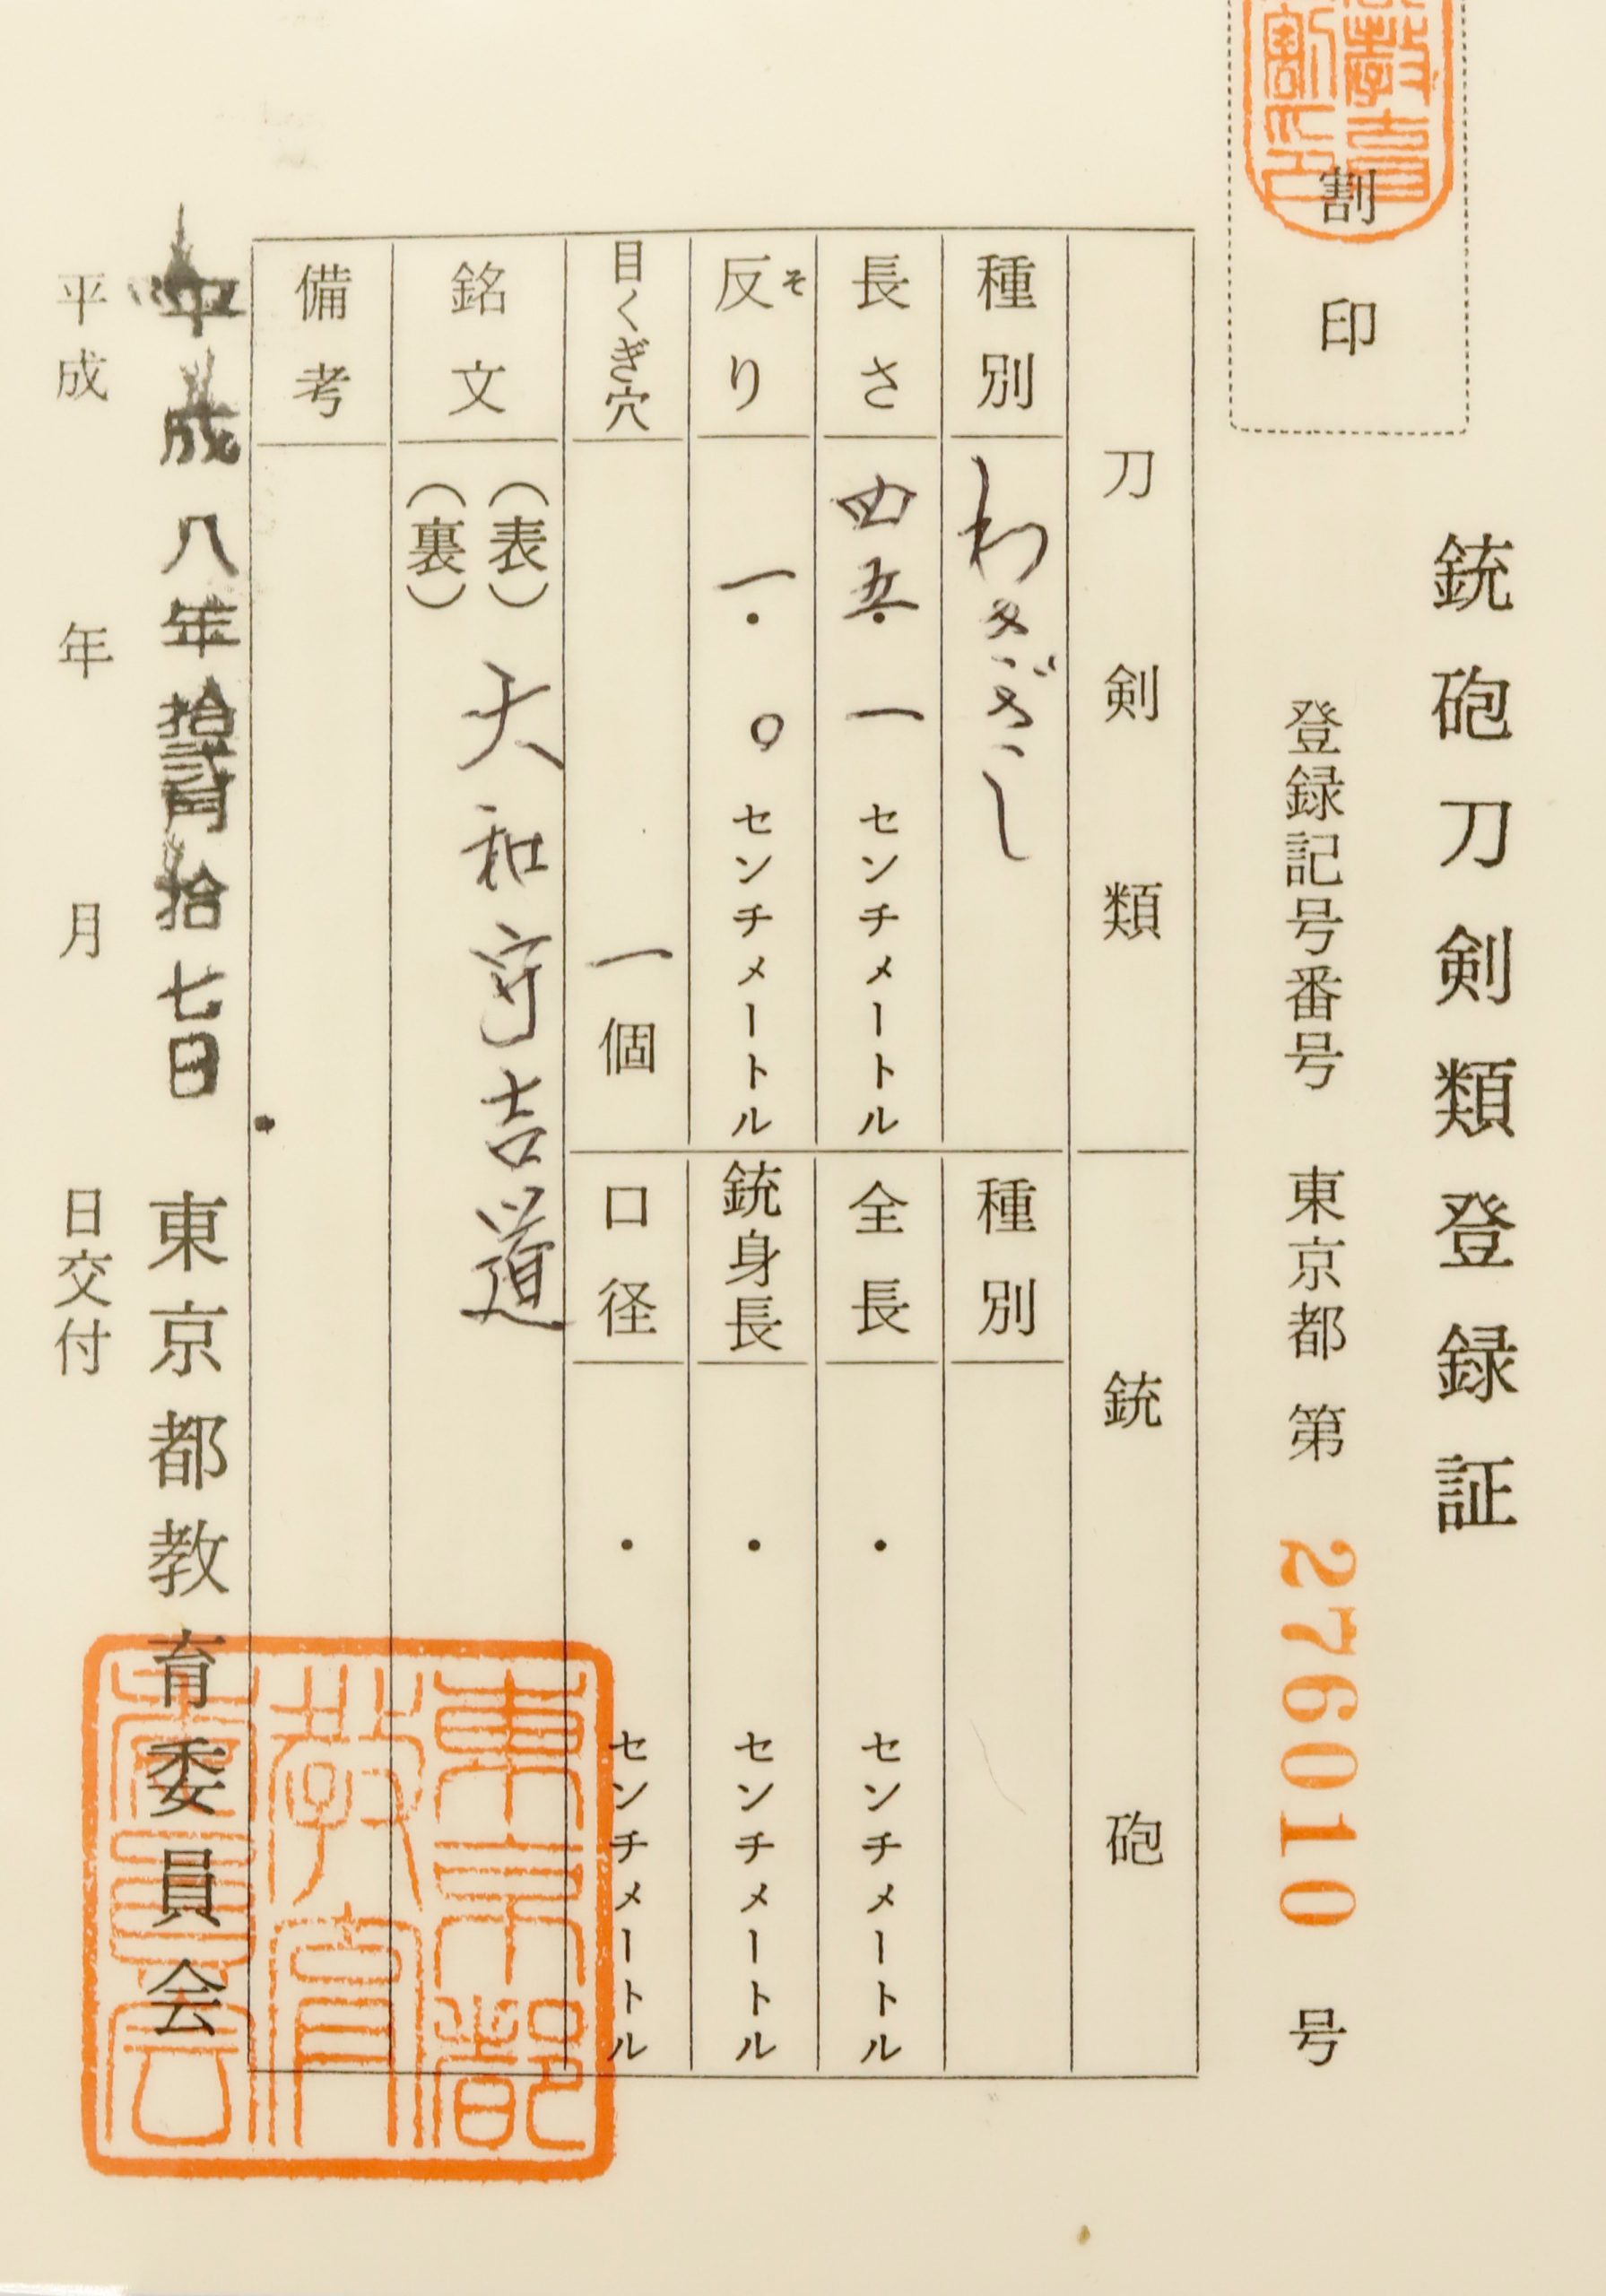 銃砲刀剣類登録証
割印
登録記号番号 東京都 第 276010 号
刀剣類
銃砲
種別 わきざし
種別
長さ 四五・一 センチメートル
全長 ・ センチメートル
反り 一・〇 センチメートル
そ
銃身長 ・ センチメートル
目くぎ穴 一個
口径 ・ センチメートル
銘文 (表) 大和守吉道
(裏)
備考
平成八年拾弐月拾七日 東京都教育委員会
平成 年 月 日交付
東京都
教育
委員会